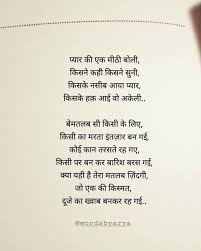 प्यार की एक मीठी बोली,
किसने कही किसने सुनी,
किसके नसीब आया प्यार,
किसके हक़ आई वो अकेली..
बेमतलब सी किसी के लिए,
किसी का मरता इंतज़ार बन गई,
कोई कान तरसते रह गए,
किसी पर बन कर बारिश बरस गई,
क्या यही है तेरा मतलब ज़िंदगी,
जो एक की किस्मत,
दूजे का ख्वाब बनकर रह गई..
@wordsbyarya